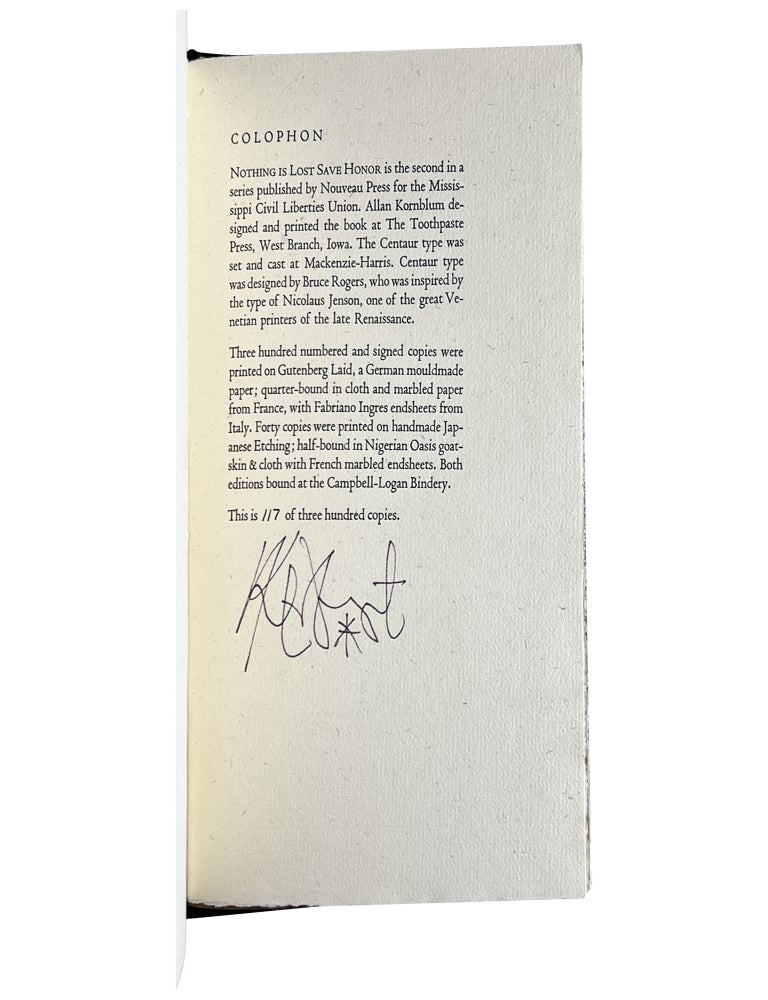 COLOPHON
NOTHING IS LOST SAVE HONOR is the second in a
series published by Nouveau Press for the Missis-
sippi Civil Liberties Union. Allan Kornblum de-
signed and printed the book at The Toothpaste
Press, West Branch, Iowa. The Centaur type was
set and cast at Mackenzie-Harris. Centaur type
was designed by Bruce Rogers, who was inspired by
the type of Nicolaus Jenson, one of the great Ve-
netian printers of the late Renaissance.
Three hundred numbered and signed copies were
printed on Gutenberg Laid, a German mouldmade
paper; quarter-bound in cloth and marbled paper
from France, with Fabriano Ingres endsheets from
Italy. Forty copies were printed on handmade Jap-
anese Etching; half-bound in Nigerian Oasis goat-
skin & cloth with French marbled endsheets. Both
editions bound at the Campbell-Logan Bindery.
This is 117 of three hundred copies.